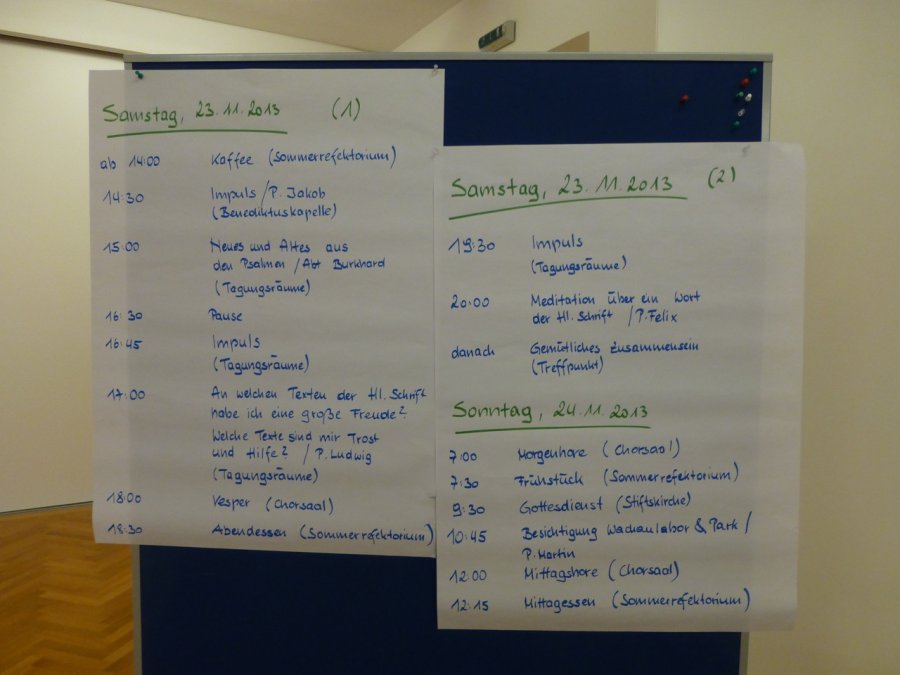 Samstag, 23.11.2013 (1)
ab 14:00 Kaffee (Sommerrefektorium)
14:30 Impuls / P. Jakob
(Benediktuskapelle)
15:00 Neues und Altes aus
den Psalmen / Abt Burkhard
(Tagungsräume)
16:30 Pause
16:45 Impuls
(Tagungsräume)
17:00 An welchen Texten der Hl. Schrift
habe ich eine große Freude?
Welche Texte sind mir Trost
und Hilfe? / P. Ludwig
(Tagungsräume)
18:00 Vesper (Chorsaal)
18:30 Abendessen (Sommerrefektorium)
Samstag, 23.11.2013 (2)
19:30 Impuls
(Tagungsräume)
20:00 Meditation über ein Wort
der Hl. Schrift / P. Felix
danach Gemütliches Zusammensein
(Treffpunkt)
Sonntag, 24.11.2013
7:00 Morgenhore (Chorsaal)
7:30 Frühstück (Sommerrefektorium)
9:30 Gottesdienst (Stiftskirche)
10:45 Besichtigung Wachaulabor & Park /
P. Martin
12:00 Mittagshore (Chorsaal)
12:15 Mittagessen (Sommerrefektorium)